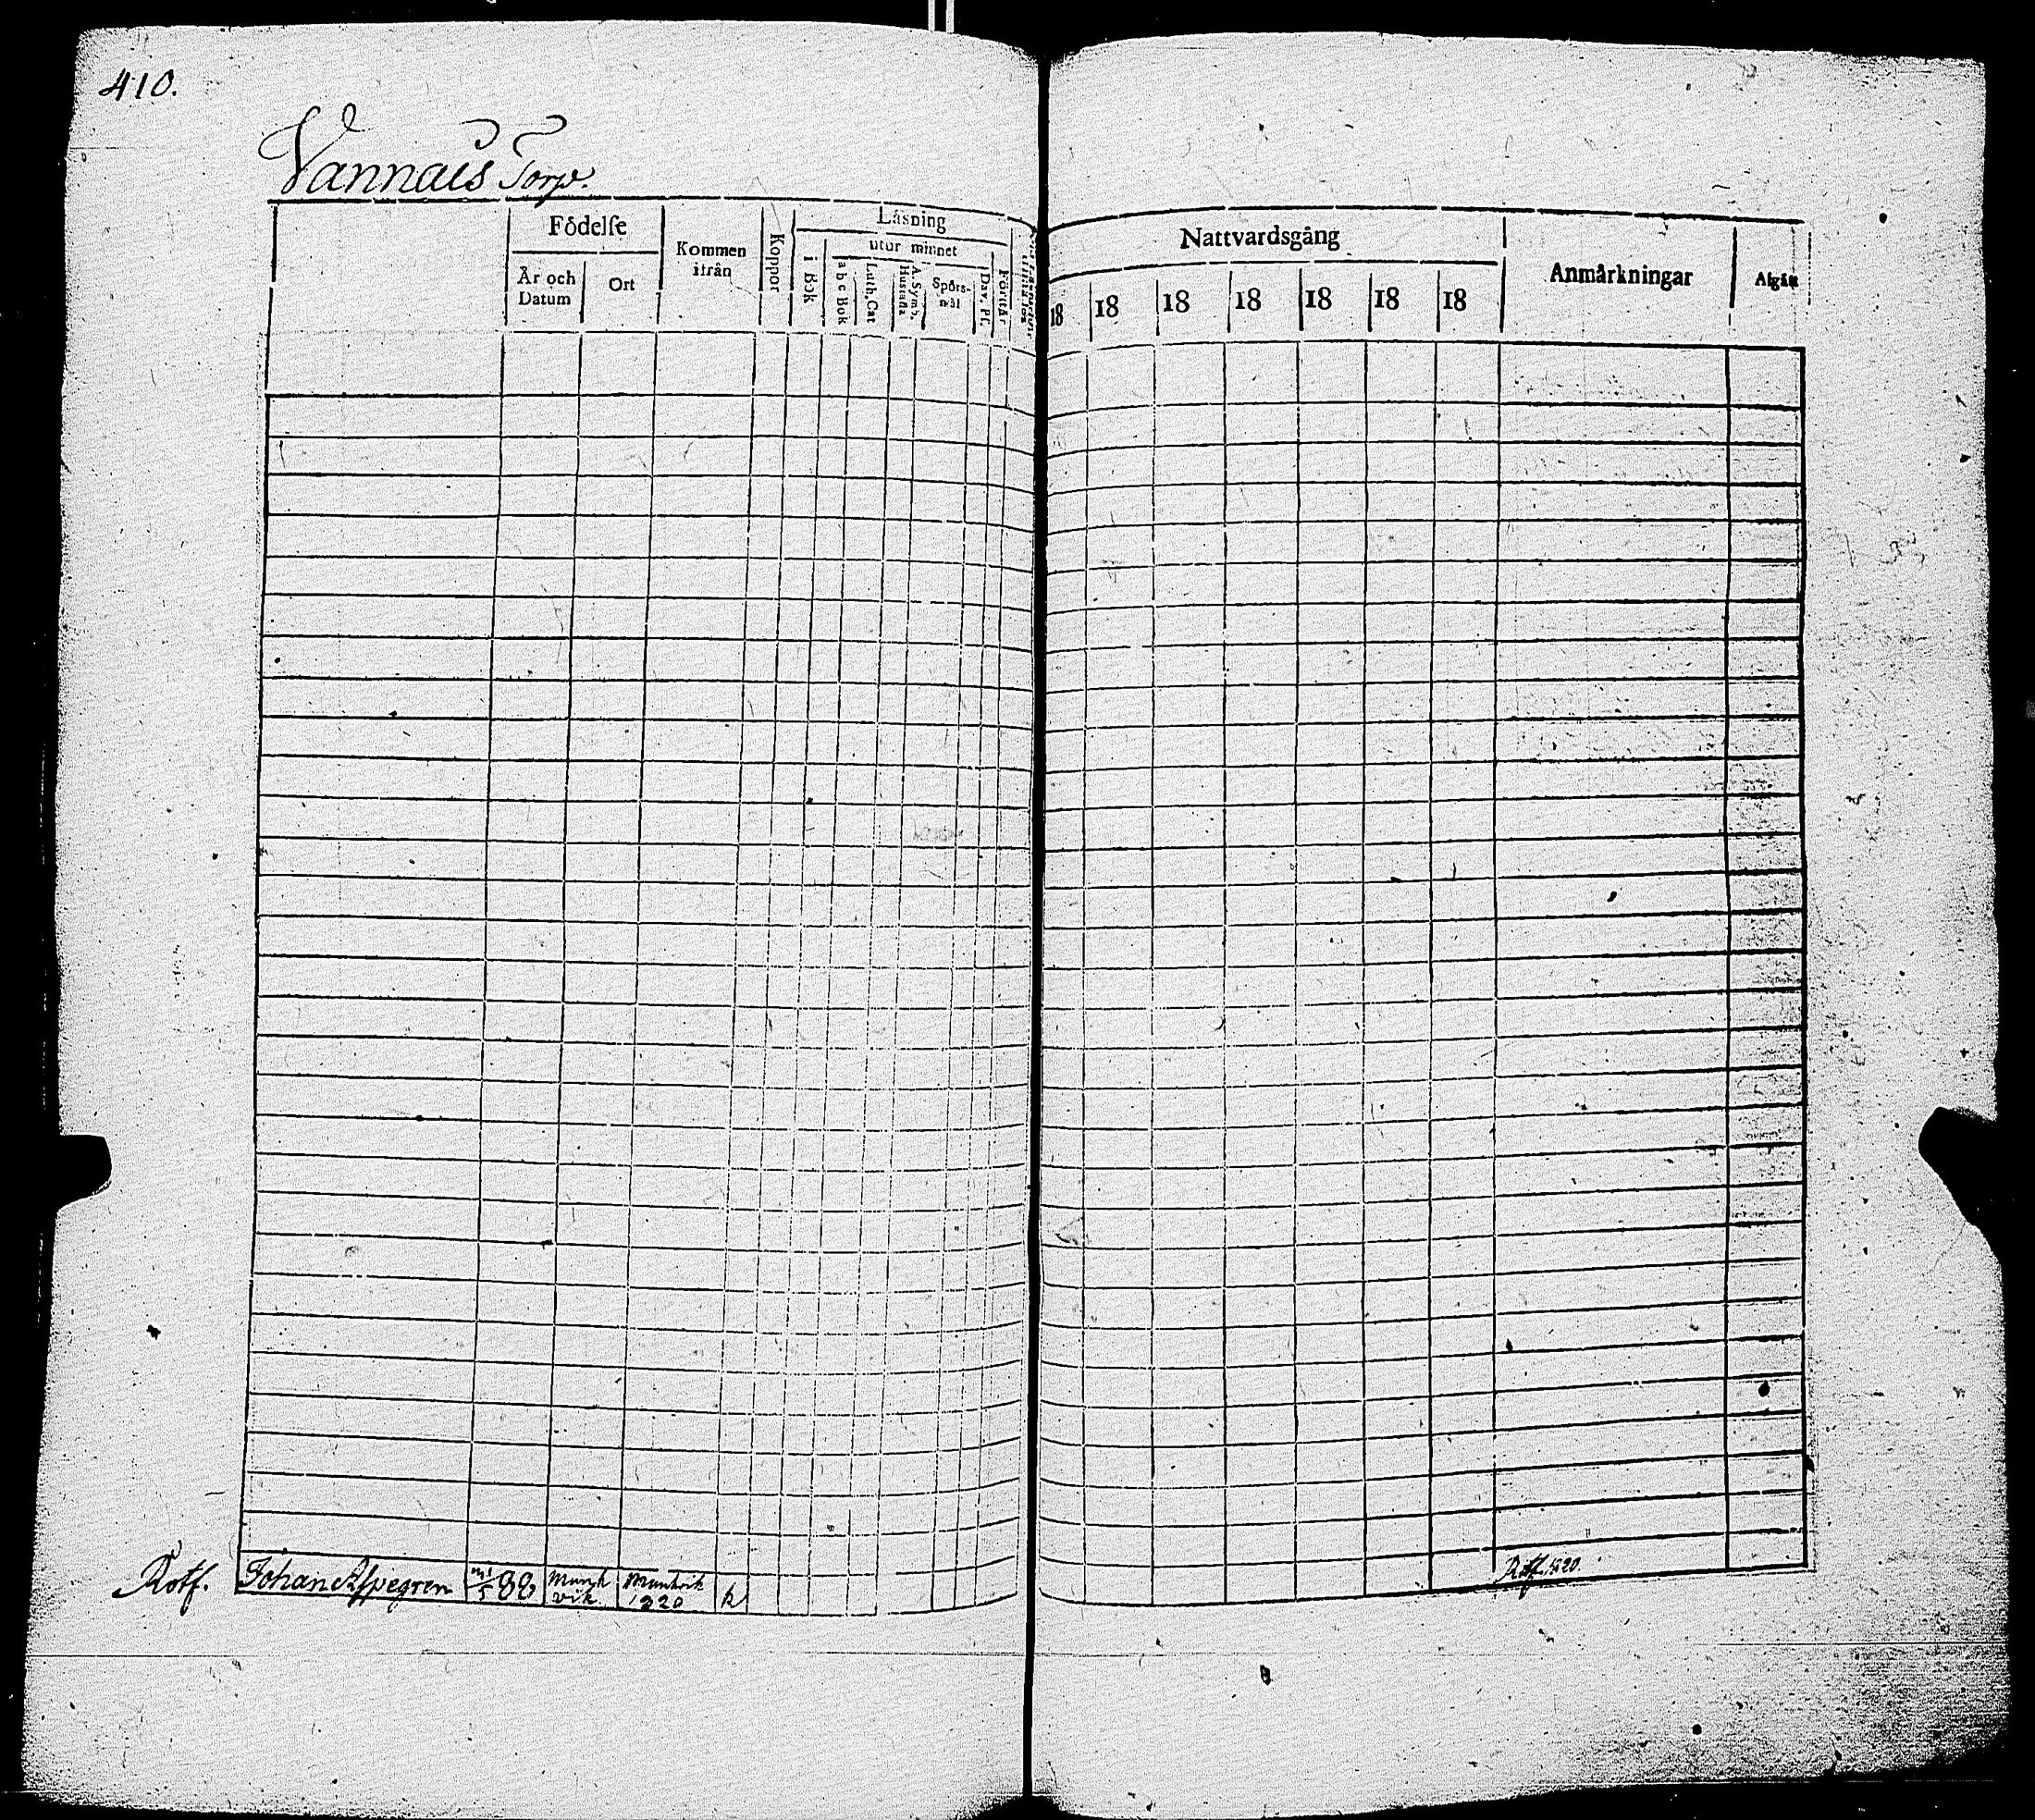 410.
Vannais Torp.
Födelse
År och Datum
Ort
Kommen ifrån
Koppor
Läsning
i Bok
utur minnet
a b c Bok
Luth. Cat
A. Symb. Hustafla
Spörs-mål
Dav. Ps.
Förstår
Nattvardsgång
18 18 18 18 18 18 18
Anmärkningar
Afgått
Rotf. Johan Aspegren 5 88 Munk vik Munkvik 1820 k Rotf. 1820